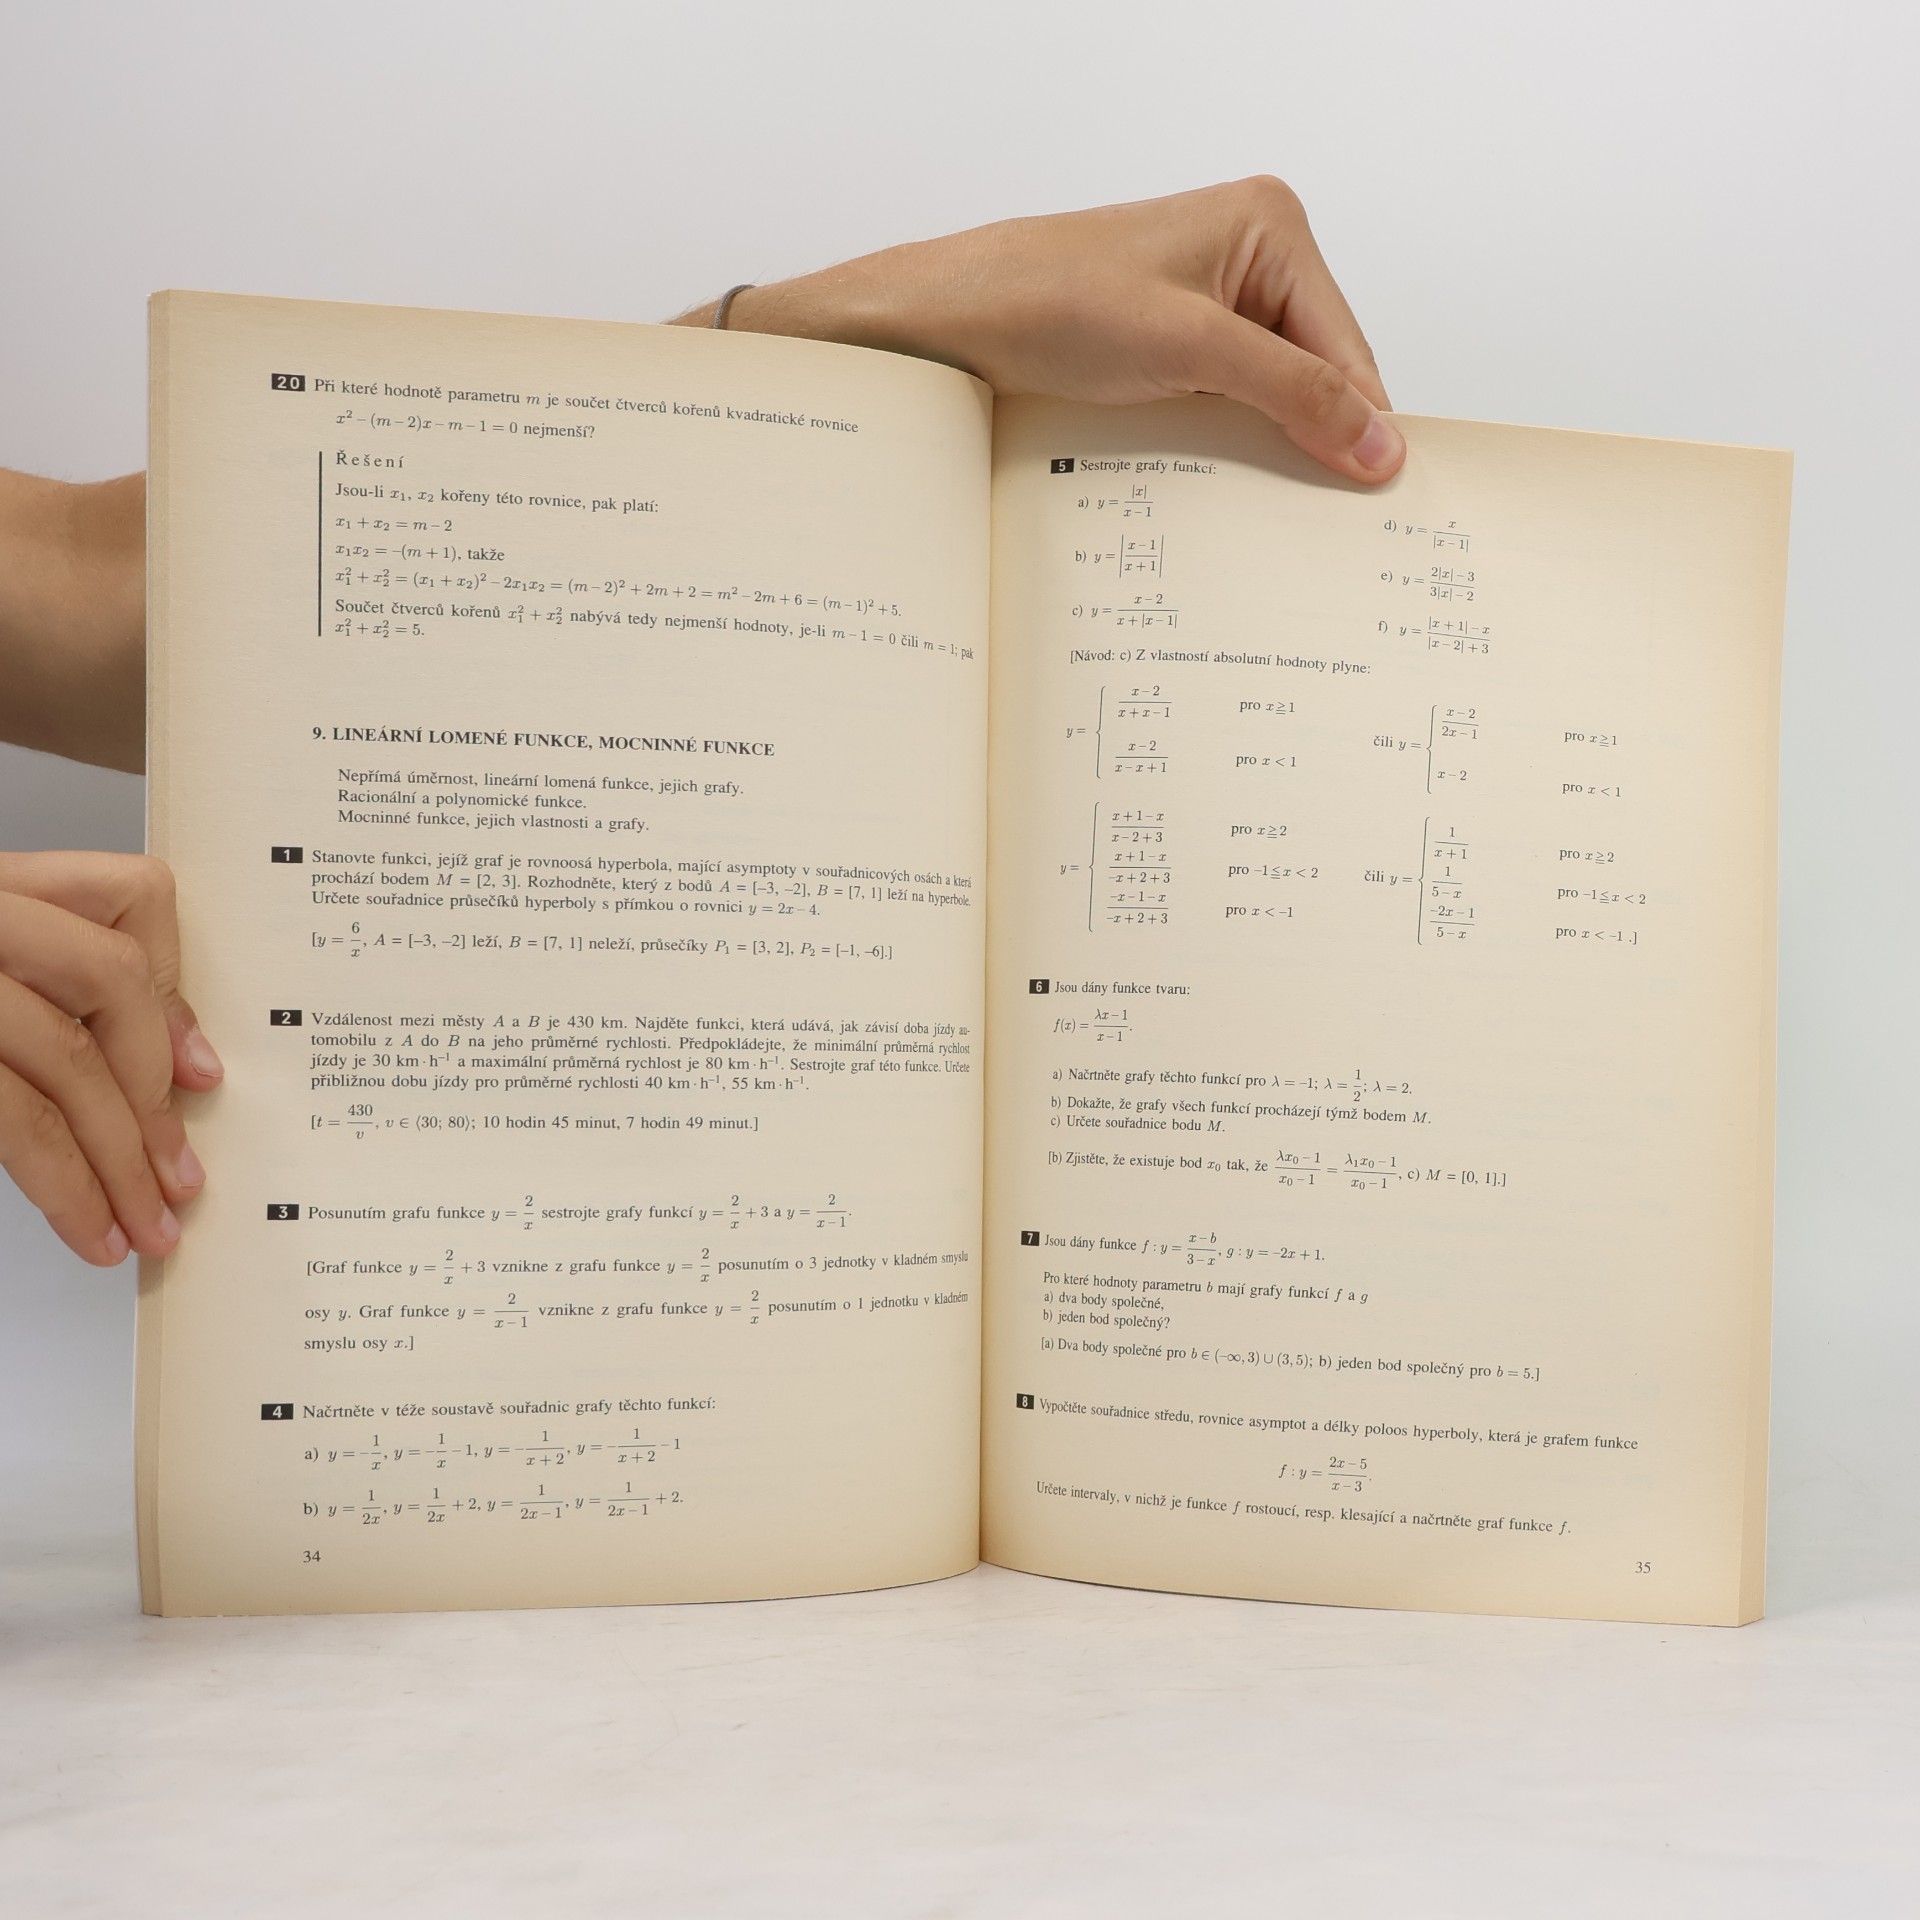 20 Při které hodnotě parametru m je součet čtverců kořenů kvadratické rovnice
x² – (m – 2)x – m – 1 = 0 nejmenší?
Řešení
Jsou-li x₁, x₂ kořeny této rovnice, pak platí:
x₁ + x₂ = m – 2
x₁x₂ = –(m + 1), takže
x₁² + x₂² = (x₁ + x₂)² – 2x₁x₂ = (m – 2)² + 2m + 2 = m² – 2m + 6 = (m – 1)² + 5.
Součet čtverců kořenů x₁² + x₂² nabývá tedy nejmenší hodnoty, je-li m – 1 = 0 čili m = 1; pak
x₁² + x₂² = 5.
9. LINEÁRNÍ LOMENÉ FUNKCE, MOCNINNÉ FUNKCE
Nepřímá úměrnost, lineární lomená funkce, jejich grafy.
Racionální a polynomické funkce.
Mocninné funkce, jejich vlastnosti a grafy.
1 Stanovte funkci, jejíž graf je rovnoosá hyperbola, mající asymptoty v souřadnicových osách a která
prochází bodem M = [2, 3]. Rozhodněte, který z bodů A = [–3, –2], B = [7, 1] leží na hyperbole.
Určete souřadnice průsečíků hyperboly s přímkou o rovnici y = 2x – 4.
[y = 6/x, A = [–3, –2] leží, B = [7, 1] neleží, průsečíky P₁ = [3, 2], P₂ = [–1, –6].]
2 Vzdálenost mezi městy A a B je 430 km. Najděte funkci, která udává, jak závisí doba jízdy au-
tomobilu z A do B na jeho průměrné rychlosti. Předpokládejte, že minimální průměrná rychlost
jízdy je 30 km · h⁻¹ a maximální průměrná rychlost je 80 km · h⁻¹. Sestrojte graf této funkce. Určete
přibližnou dobu jízdy pro průměrné rychlosti 40 km · h⁻¹, 55 km · h⁻¹.
[t = 430/v, v ∈ ⟨30; 80⟩; 10 hodin 45 minut, 7 hodin 49 minut.]
3 Posunutím grafu funkce y = 2/x sestrojte grafy funkcí y = 2/x + 3 a y = 2/(x – 1).
[Graf funkce y = 2/x + 3 vznikne z grafu funkce y = 2/x posunutím o 3 jednotky v kladném smyslu
osy y. Graf funkce y = 2/(x – 1) vznikne z grafu funkce y = 2/x posunutím o 1 jednotku v kladném
smyslu osy x.]
4 Načrtněte v téže soustavě souřadnic grafy těchto funkcí:
a) y = –1/x, y = –1/x – 1, y = –1/(x + 2), y = –1/(x + 2) – 1
b) y = 1/2x, y = 1/2x + 2, y = 1/(2x – 1), y = 1/(2x – 1) + 2.
34
5 Sestrojte grafy funkcí:
a) y = |x|/(x – 1)
d) y = x/|x – 1|
b) y = |(x – 1)/(x + 1)|
e) y = (2|x| – 3)/(3|x| – 2)
c) y = (x – 2)/(x + |x – 1|)
f) y = (|x + 1| – x)/(|x – 2| + 3)
[Návod: c) Z vlastností absolutní hodnoty plyne:
y = { (x – 2)/(x + x – 1) pro x ≧ 1 čili y = { (x – 2)/(2x – 1) pro x ≧ 1
(x – 2)/(x – x + 1) pro x < 1 x – 2 pro x < 1
y = { (x + 1 – x)/(x – 2 + 3) pro x ≧ 2 čili y = { 1/(x + 1) pro x ≧ 2
(x + 1 – x)/(–x + 2 + 3) pro –1 ≦ x < 2 1/(5 – x) pro –1 ≦ x < 2
(–x – 1 – x)/(–x + 2 + 3) pro x < –1 (–2x – 1)/(5 – x) pro x < –1 .]
6 Jsou dány funkce tvaru:
f(x) = (λx – 1)/(x – 1).
a) Načrtněte grafy těchto funkcí pro λ = –1; λ = 1/2; λ = 2.
b) Dokažte, že grafy všech funkcí procházejí týmž bodem M.
c) Určete souřadnice bodu M.
[b) Zjistěte, že existuje bod x₀ tak, že (λx₀ – 1)/(x₀ – 1) = (λ₁x₀ – 1)/(x₀ – 1), c) M = [0, 1].]
7 Jsou dány funkce f : y = (x – b)/(3 – x), g : y = –2x + 1.
Pro které hodnoty parametru b mají grafy funkcí f a g
a) dva body společné,
b) jeden bod společný?
[a) Dva body společné pro b ∈ (–∞, 3) ∪ (3, 5); b) jeden bod společný pro b = 5.]
8 Vypočtěte souřadnice středu, rovnice asymptot a délky poloos hyperboly, která je grafem funkce
f : y = (2x – 5)/(x – 3).
Určete intervaly, v nichž je funkce f rostoucí, resp. klesající a načrtněte graf funkce f.
35